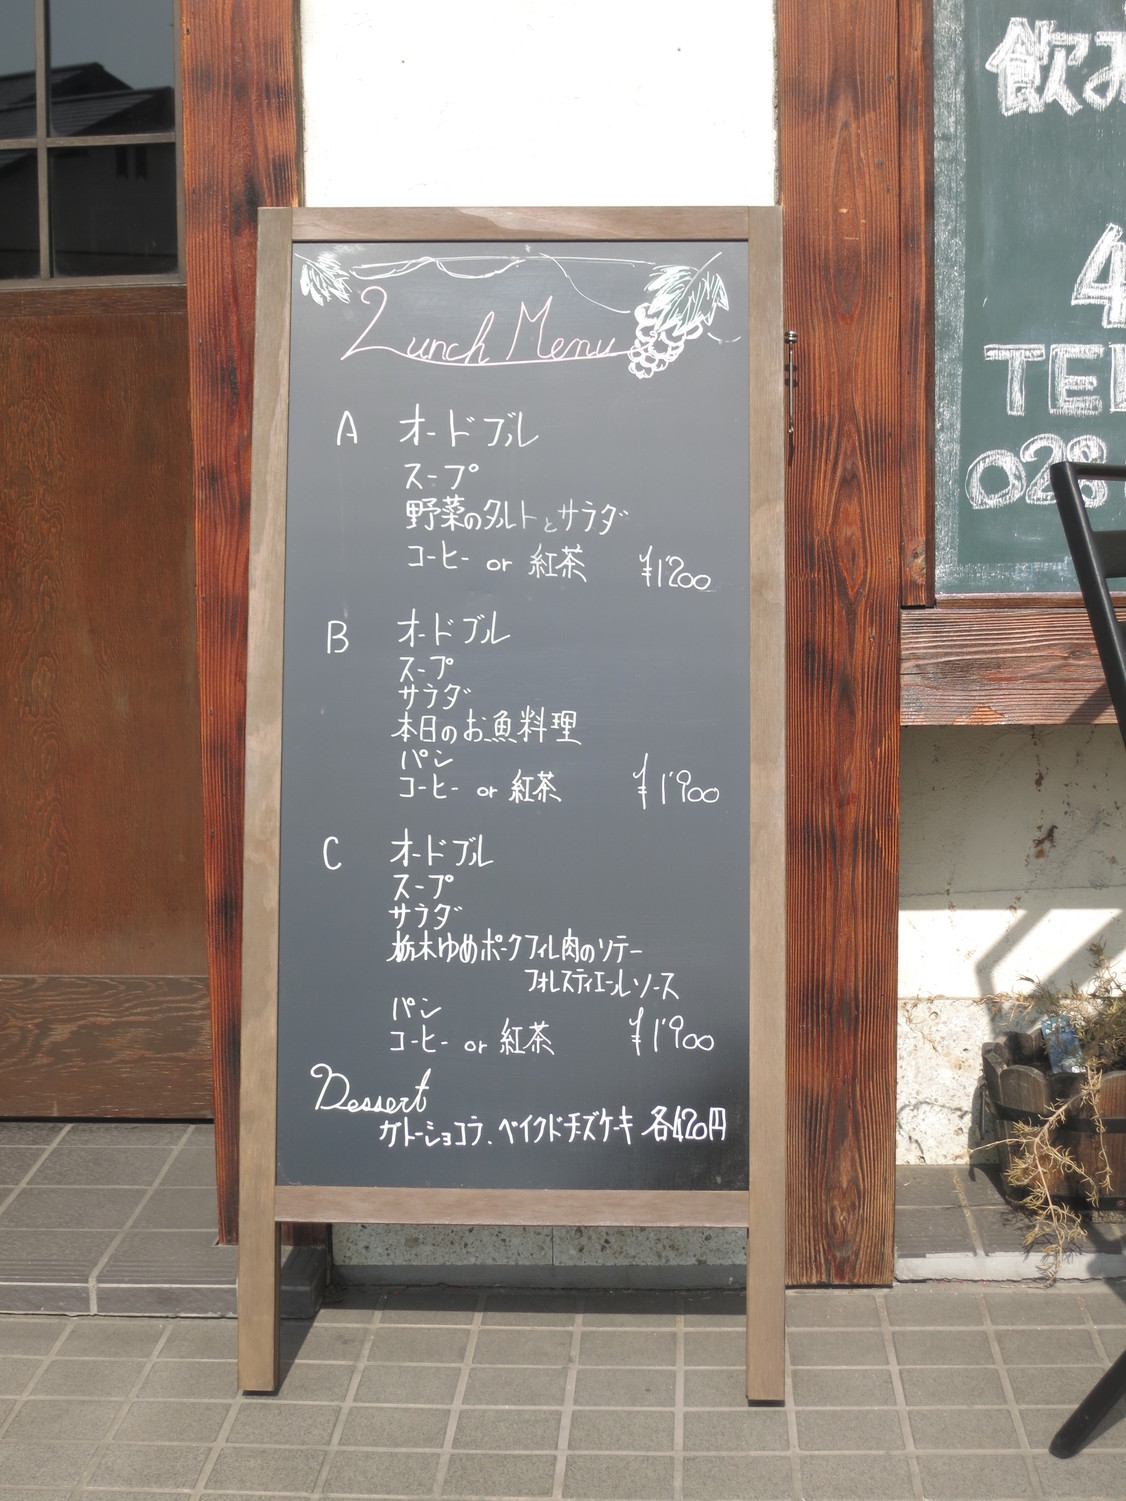 Lunch Menu
A オードブル
スープ
野菜のタルトとサラダ
コーヒー or 紅茶 ¥1'200
B オードブル
スープ
サラダ
本日のお魚料理
パン
コーヒー or 紅茶 ¥1'900
C オードブル
スープ
サラダ
栃木ゆめポークフィレ肉のソテー
フォレスティエールソース
パン
コーヒー or 紅茶 ¥1'900
Dessert
ガトーショコラ、ベイクドチーズケーキ 各420円
飲み
4
TEL
028